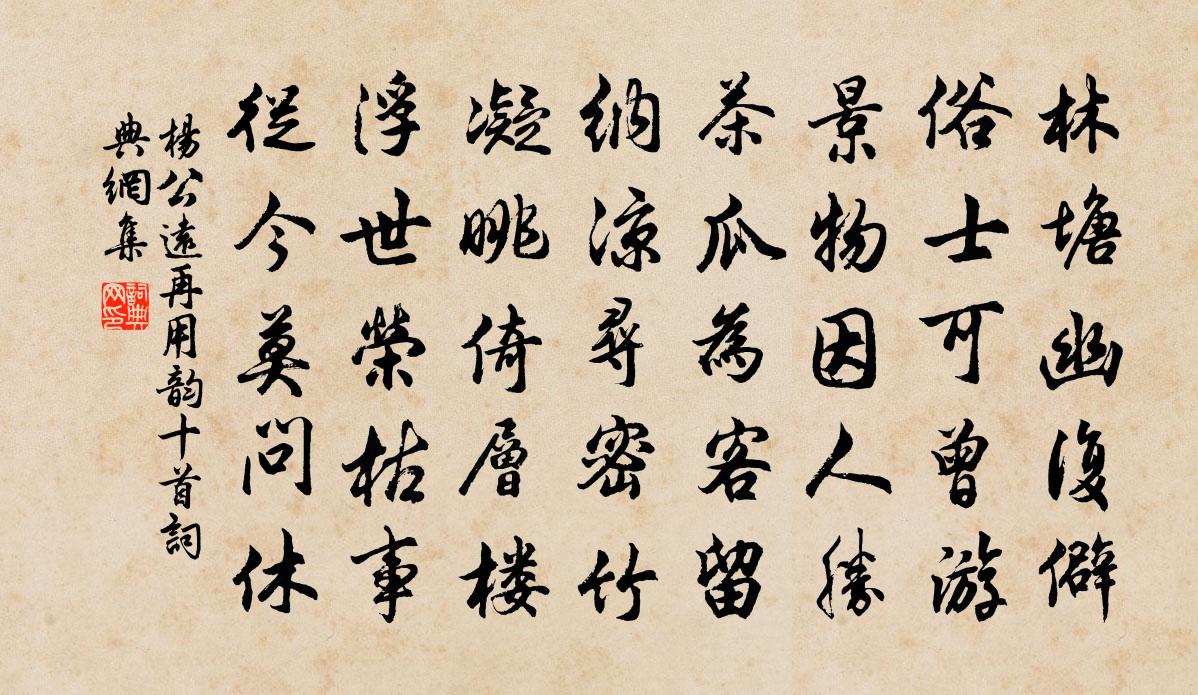 林塘幽復僻
俗士可曾游
景物因人勝
茶瓜為客留
納涼尋密竹
凝眺倚層楼
浮世榮枯事
從今莫問休
楊公遠再用韵十首詞
典網集
詞典
网印